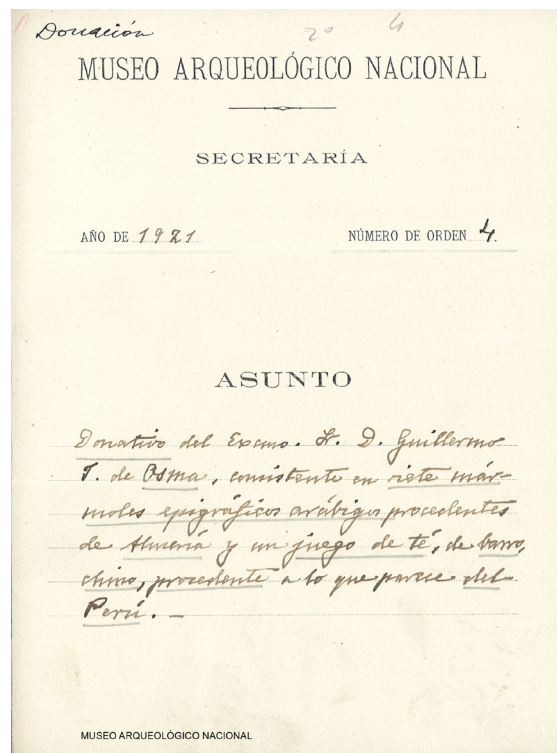 Donación
2º 4
MUSEO ARQUEOLÓGICO NACIONAL
SECRETARÍA
AÑO DE 1921
NÚMERO DE ORDEN 4.
ASUNTO
Donativo del Excmo. Sr. D. Guillermo
J. de Osma, consistente en siete már-
moles epigráficos arábigos procedentes
de Almería y un juego de té, de barro,
chino, procedente a lo que parece del
Perú. —
MUSEO ARQUEOLÓGICO NACIONAL